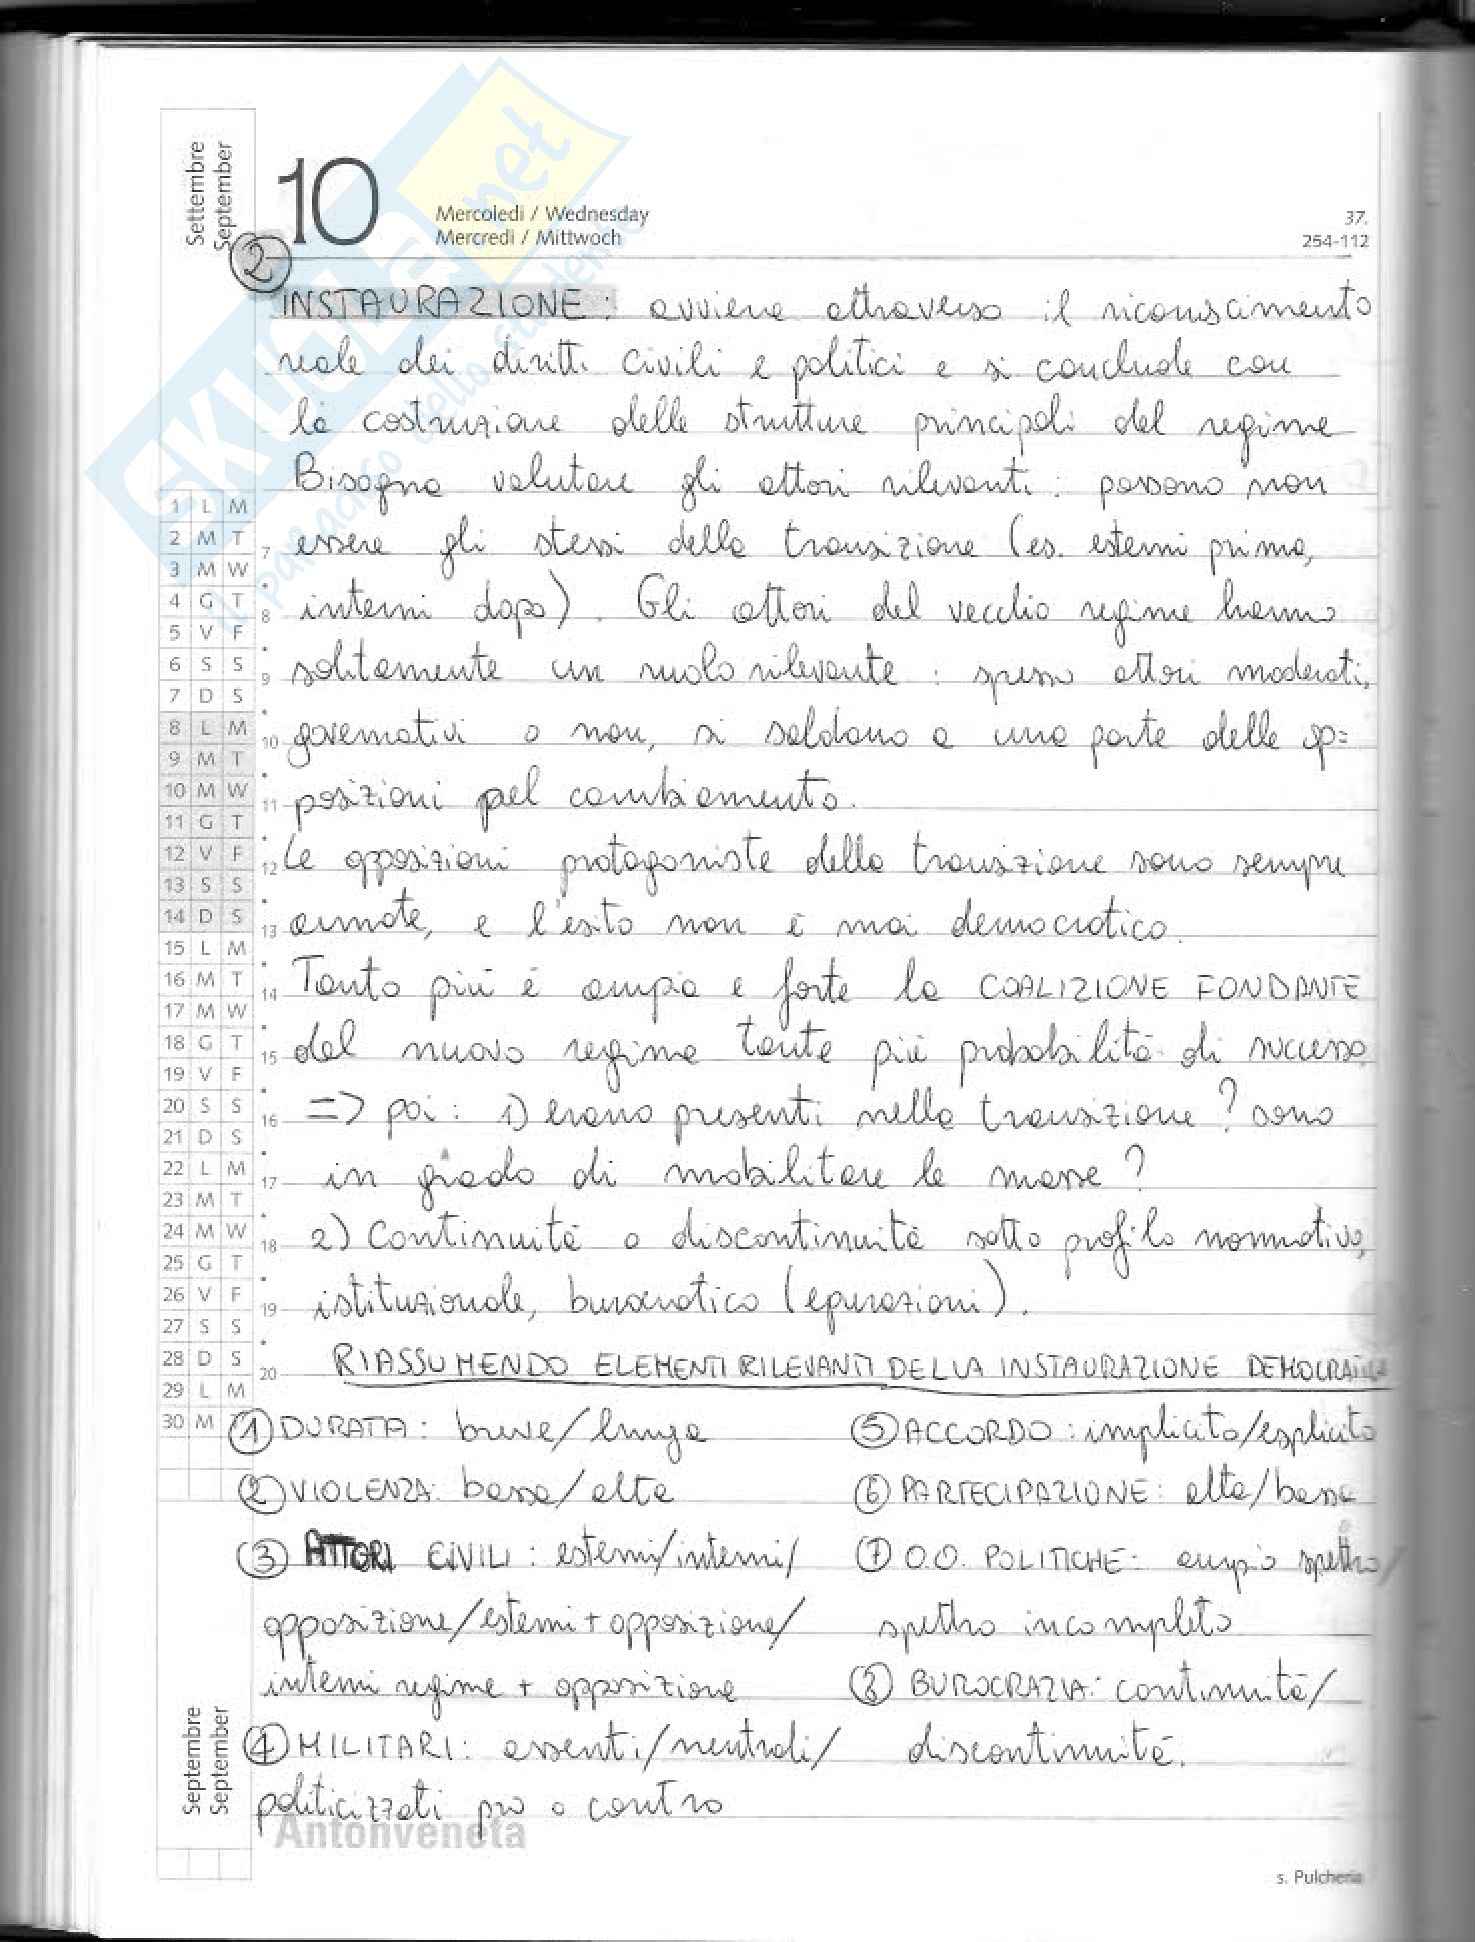 Settembre
September
10
Mercoledì / Wednesday
Mercredi / Mittwoch
37.
254-112
SKUOLA.net
il paradiso dello studente
② INSTAURAZIONE: avviene attraverso il riconoscimento
reale dei diritti civili e politici e si conclude con
la costruzione delle strutture principali del regime
Bisogna valutare gli attori rilevanti: possono non
essere gli stessi della transizione (es. esterni prima,
interni dopo). Gli attori del vecchio regime hanno
solitamente un ruolo rilevante: spesso attori moderati,
governativi o non, si saldano a una parte delle op=
posizioni pel cambiamento.
Le opposizioni protagoniste della transizione sono sempre
armate, e l'esito non è mai democratico.
Tanto più è ampia e forte la COALIZIONE FONDANTE
del nuovo regime tante più probabilità di successo
=> poi: 1) erano presenti nella transizione? sono
in grado di mobilitare le masse?
2) Continuità o discontinuità sotto profilo normativo,
istituzionale, burocratico (epurazioni).
RIASSUMENDO ELEMENTI RILEVANTI DELLA INSTAURAZIONE DEMOCRATICA
① DURATA: breve/lunga
② VIOLENZA: bassa/alta
③ ATTORI CIVILI: esterni/interni/
opposizione/esterni+opposizione/
interni regime + opposizione
④ MILITARI: assenti/neutrali/
politicizzati pro o contro
⑤ ACCORDO: implicito/esplicito
⑥ PARTECIPAZIONE: alta/bassa
⑦ O.O. POLITICHE: ampio spettro/
spettro incompleto
⑧ BUROCRAZIA: continuità/
discontinuità.
1 L M
2 M T
3 M W
4 G T
5 V F
6 S S
7 D S
8 L M
9 M T
10 M W
11 G T
12 V F
13 S S
14 D S
15 L M
16 M T
17 M W
18 G T
19 V F
20 S S
21 D S
22 L M
23 M T
24 M W
25 G T
26 V F
27 S S
28 D S
29 L M
30 M
7
8
9
10
11
12
13
14
15
16
17
18
19
20
Septembre
September
Antonveneta
s. Pulcheria